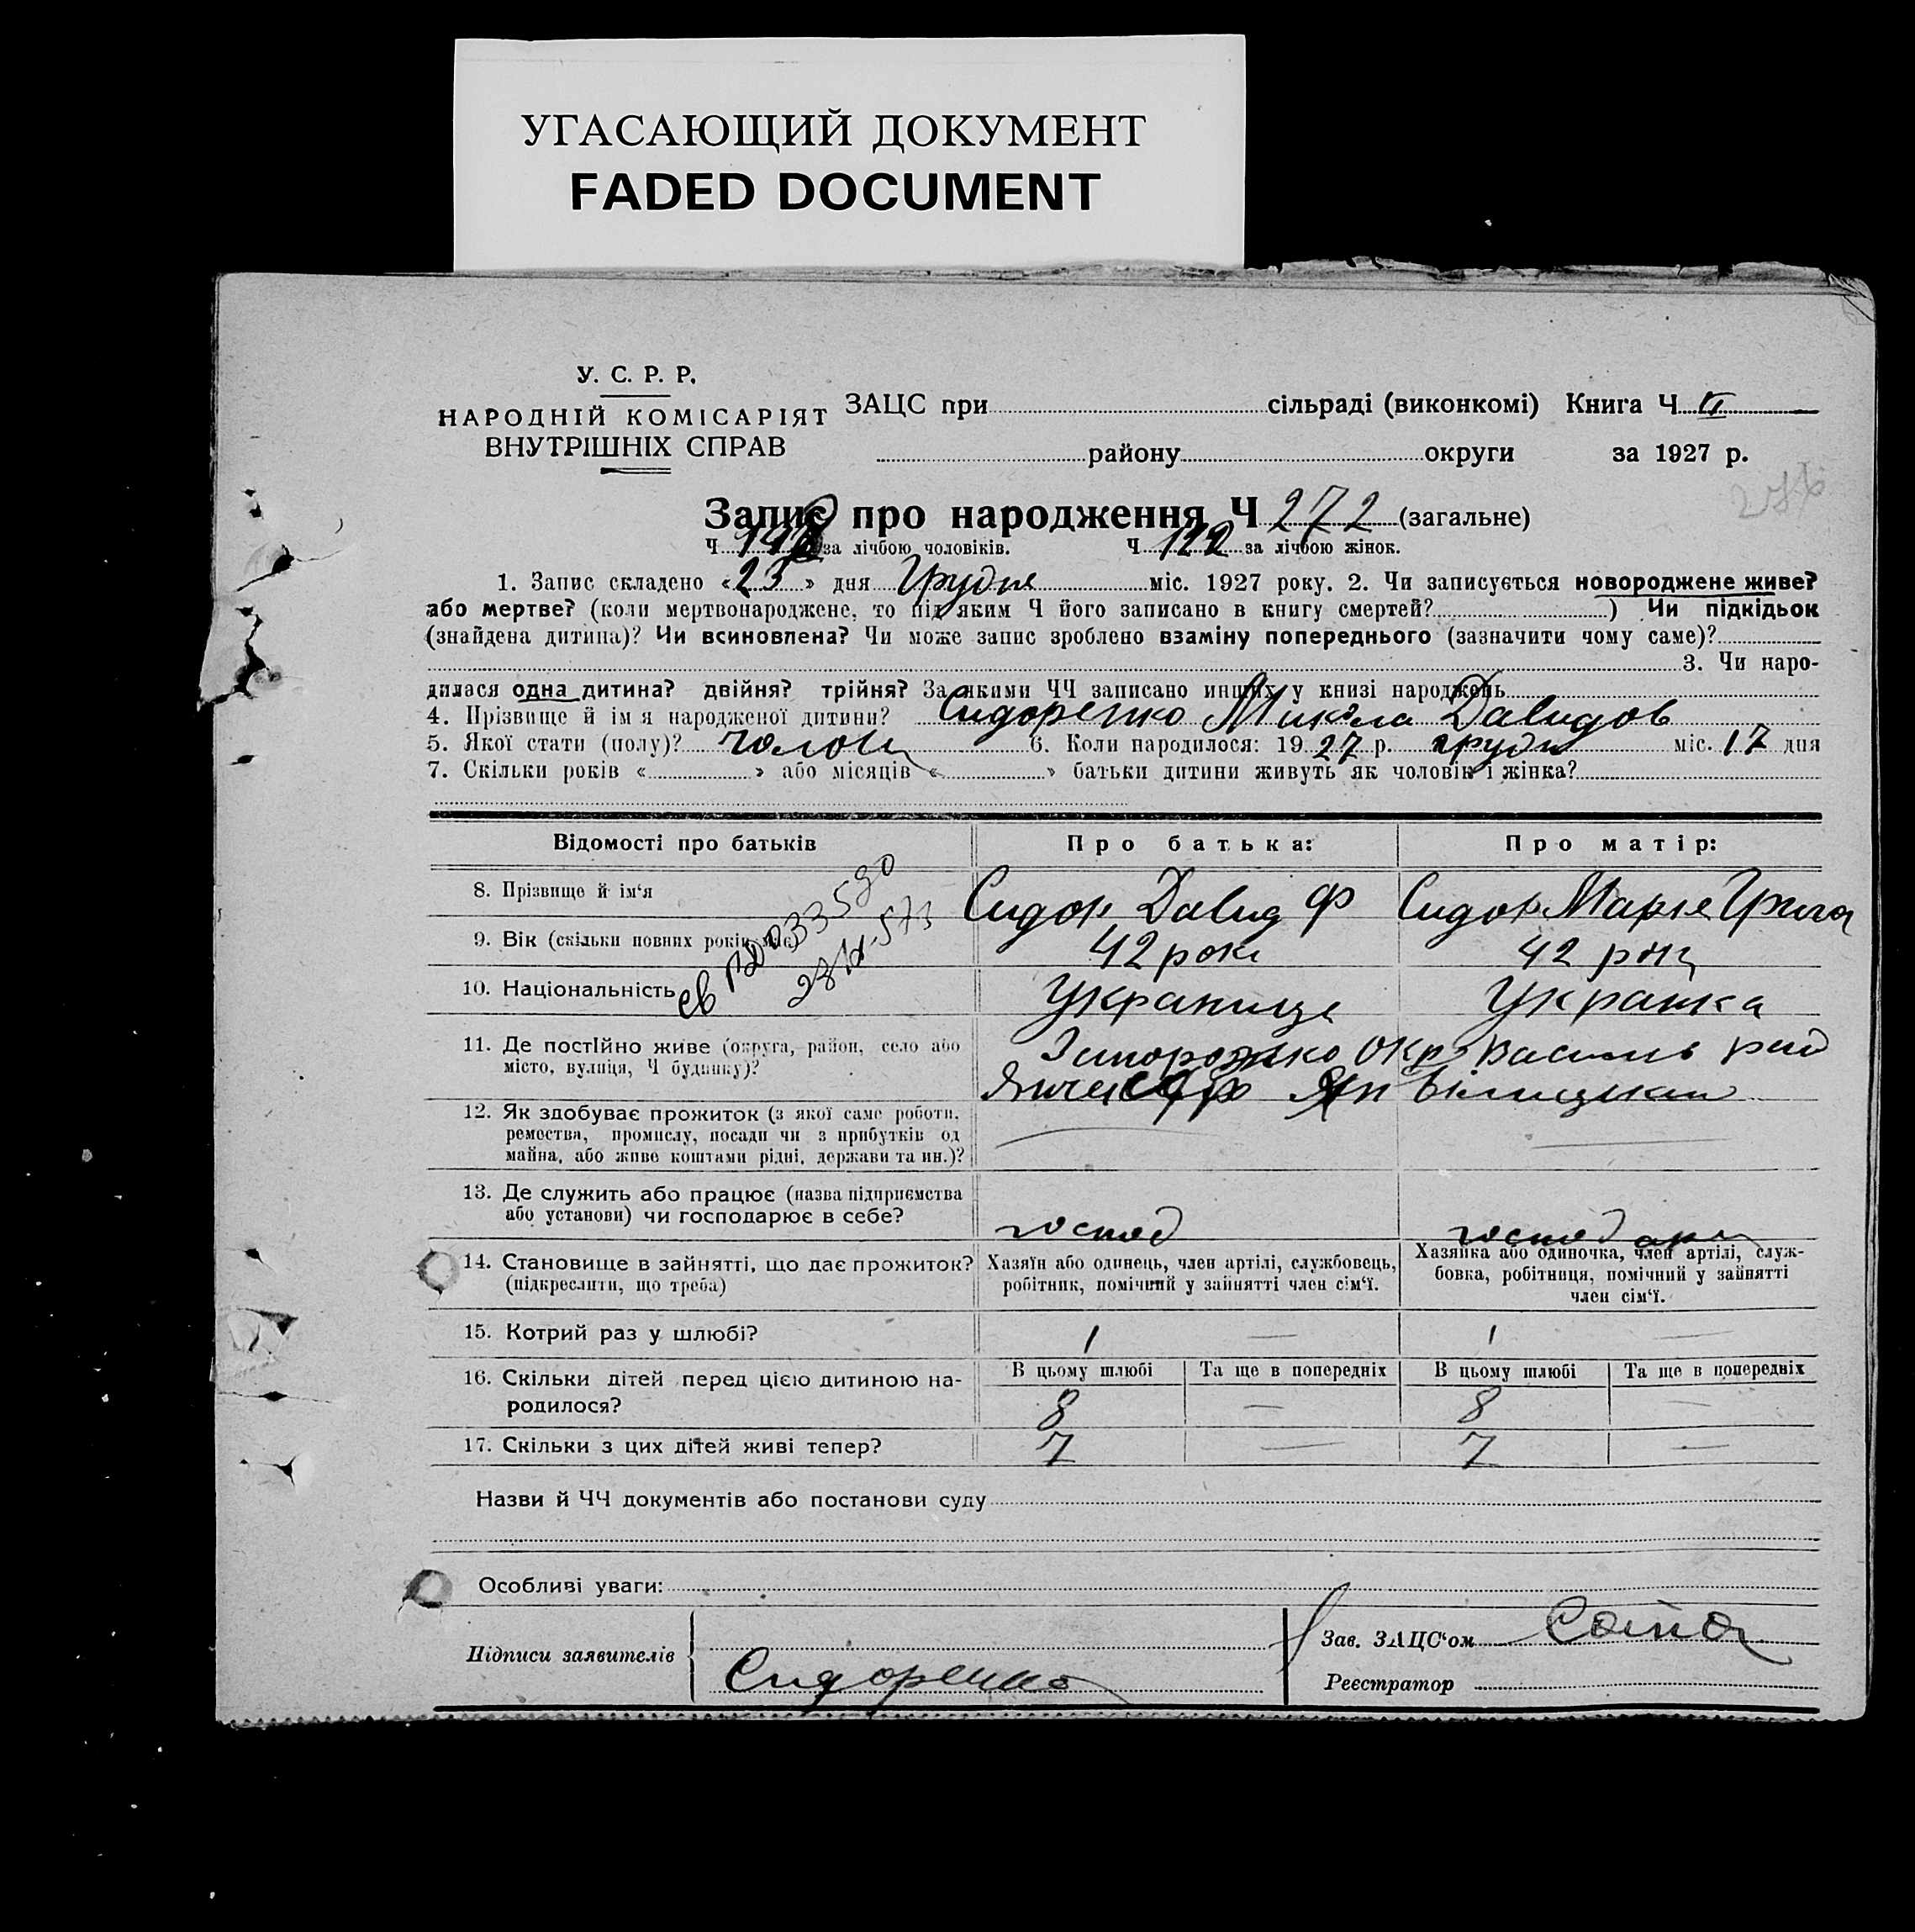 УГАСАЮЩИЙ ДОКУМЕНТ
FADED DOCUMENT
У. С. Р. Р.
НАРОДНІЙ КОМІСАРІЯТ
ВНУТРІШНІХ СПРАВ
ЗАЦС при сільраді (виконкомі) Книга Ч
району округи за 1927 р.
Запис про народження Ч 272 (загальне)
Ч за лічбою чоловіків. Ч 122 за лічбою жінок.
1. Запис складено «23» дня Грудня міс. 1927 року. 2. Чи записується новороджене живе?
або мертве? (коли мертвонароджене, то під яким Ч його записано в книгу смертей? ) Чи підкідьок
(знайдена дитина)? Чи всиновлена? Чи може запис зроблено взаміну попереднього (зазначити чому саме)?
3. Чи наро-
дилася одна дитина? двійня? трійня? За якими ЧЧ записано инших у книзі народжень
4. Прізвище й ім'я народженої дитини? Сидоренко Микола Давидов
5. Якої стати (полу)? чолов 6. Коли народилося: 1927 р. грудн міс. 17 дня
7. Скільки років « » або місяців « » батьки дитини живуть як чоловік і жінка?
Відомості про батьків Про батька: Про матір:
8. Прізвище й ім'я Сидор Давид Ф Сидор Марія Григо
9. Вік (скільки повних років має) 42 роки 42 років
10. Національність Українець Українка
11. Де постійно живе (округа, район, село або Запорожжо Окр Василів рай
місто, вулиця, Ч будинку)?
12. Як здобуває прожиток (з якої саме роботи,
ремества, промислу, посади чи з прибутків од
майна, або живе коштами рідні, держави та ин.)?
13. Де служить або працює (назва підприємства
або установи) чи господарює в себе? господ господар
14. Становище в зайнятті, що дає прожиток?
(підкреслити, що треба)
Хазяїн або одинець, член артілі, службовець,
робітник, помічний у зайнятті член сім'ї.
Хазяйка або одиночка, член артілі, служ-
бовка, робітниця, помічний у зайнятті
член сім'ї.
15. Котрий раз у шлюбі? 1 — 1 —
16. Скільки дітей перед цією дитиною на-
родилося?
В цьому шлюбі Та ще в попередніх В цьому шлюбі Та ще в попередніх
8 — 8 —
17. Скільки з цих дітей живі тепер? 7 — 7 —
Назви й ЧЧ документів або постанови суду
Особливі уваги:
Підписи заявителів Сидоренко
Зав. ЗАЦС'ом
Реєстратор